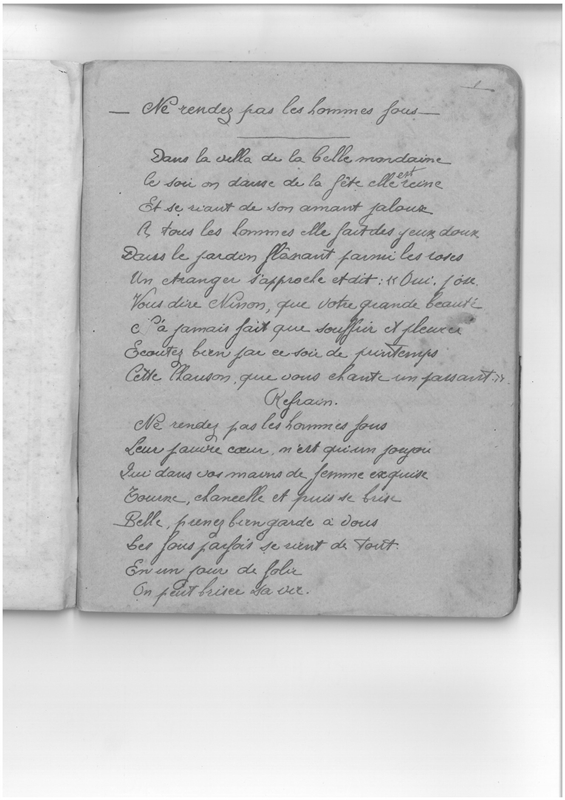 1
— Ne rendez pas les hommes fous —
Dans la villa de la belle mondaine
le soir on danse de la fête elle est reine
Et se riant de son amant jaloux
A tous les hommes elle fait des yeux doux
Dans le jardin flânant parmi les roses
Un étranger s'approche et dit : " Oui j'ose
Vous dire Ninon, que votre grande beauté
à jamais fait que souffrir et pleurer
Ecoutez bien par ce soir de printemps
Cette Chanson, que vous chante un passant. "
Refrain.
Ne rendez pas les hommes fous
Leur pauvre cœur, n'est qu'un joujou
Qui dans vos mains de femme exquise
Tourne, chancelle et puis se brise
Belle, prenez bien garde à vous
Les fous parfois se vient de tout
En un jour de folie
On peut briser sa vie.